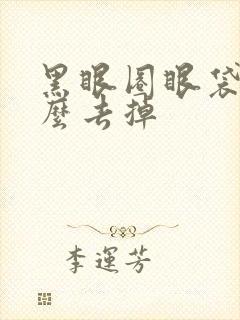 黑眼圈眼袋
麼去掉
李運芳